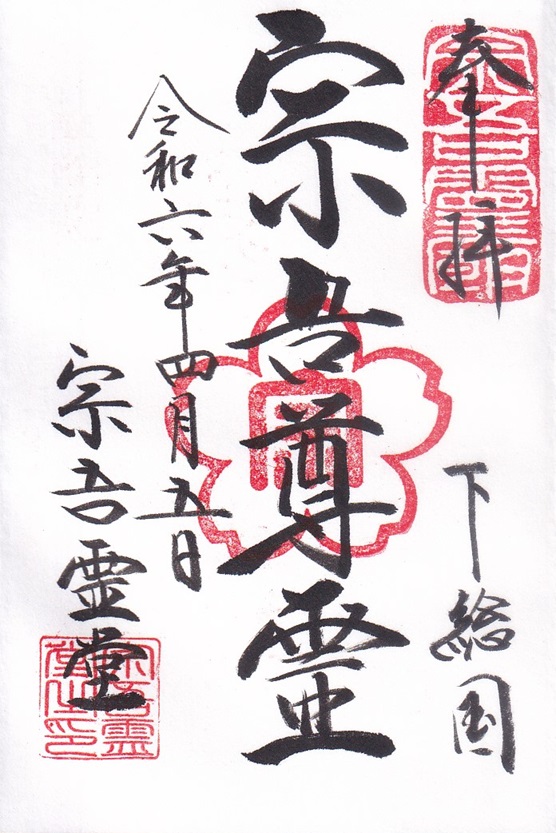 奉拝
下総国
宗吾尊霊
令和六年四月五日
宗吾霊堂